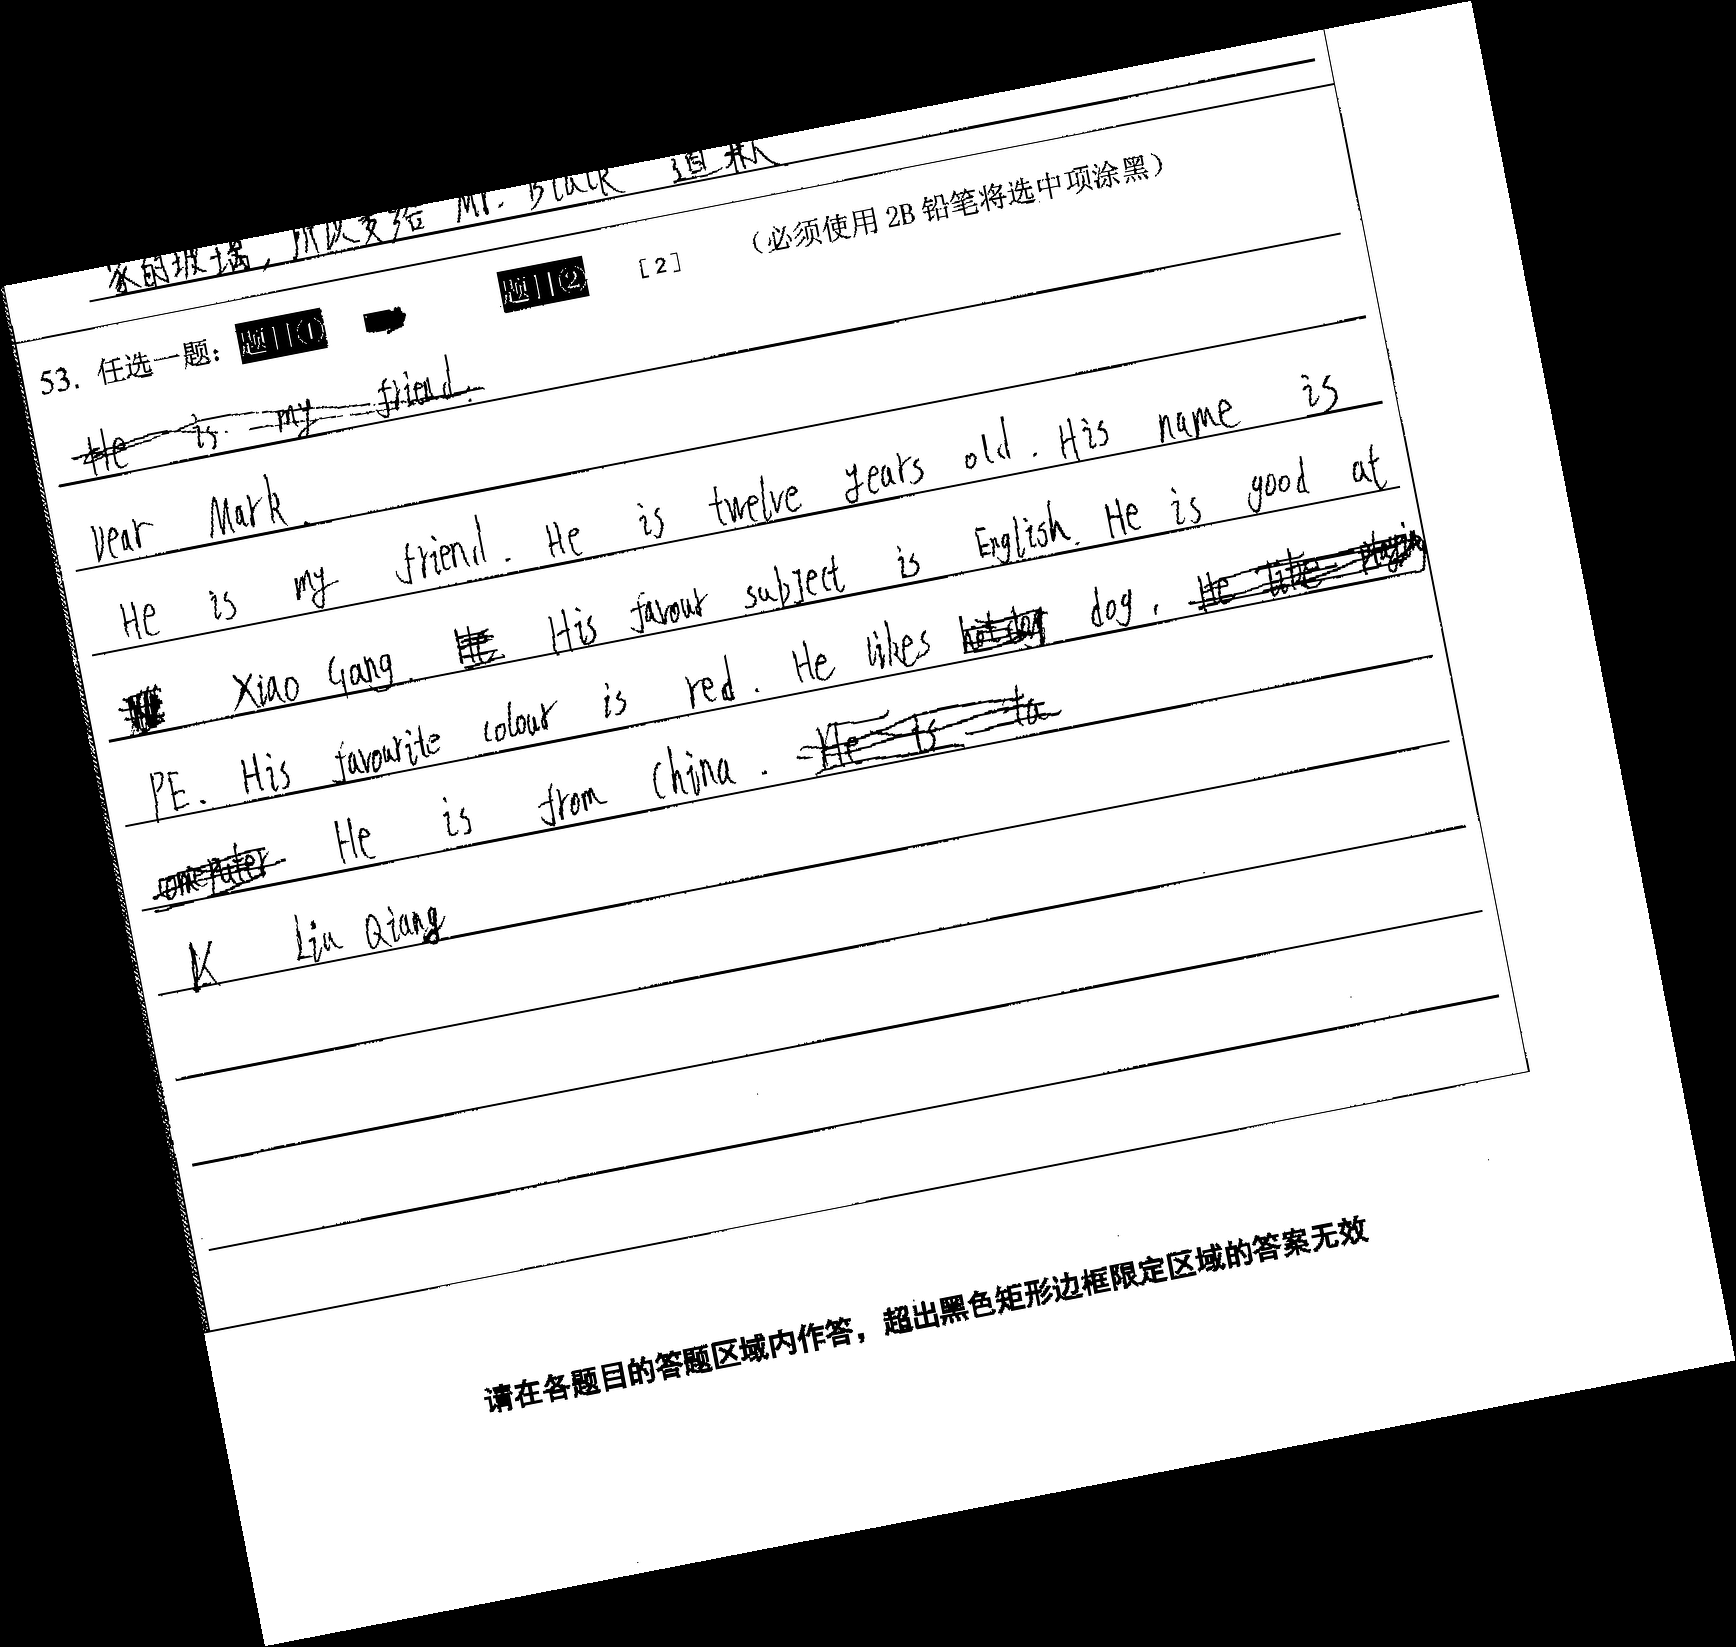 家的玻璃，所以要给 Mr. Black 道歉
53. 任选一题： 题目① 题目② [2] （必须使用 2B 铅笔将选中项涂黑）
He is my friend.
Dear Mark.
He is my friend. He is twelve years old. His name is
Xiao Gang. He His favour subject is English. He is good at
PE. His favourite colour is red. He likes hot dog dog. He like playin
computer He is from China. He is ta
Liu Qiang
请在各题目的答题区域内作答，超出黑色矩形边框限定区域的答案无效